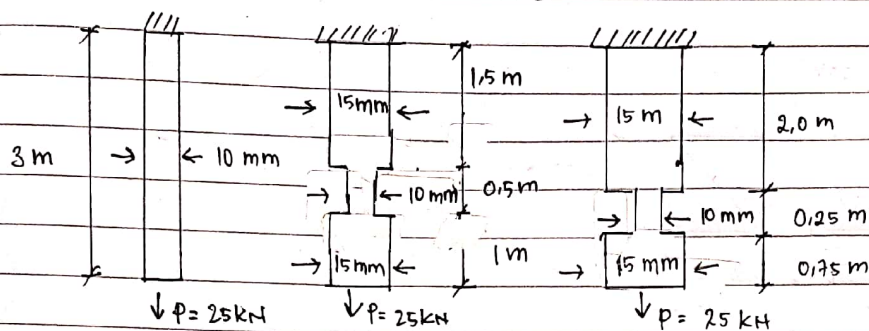 3 m
10 mm
P = 25KN
1,5 m
15mm
10 mm
0,5 m
15mm
1 m
P = 25KN
15 m
2,0 m
10 mm
0,25 m
15 mm
0,75 m
P = 25 KN